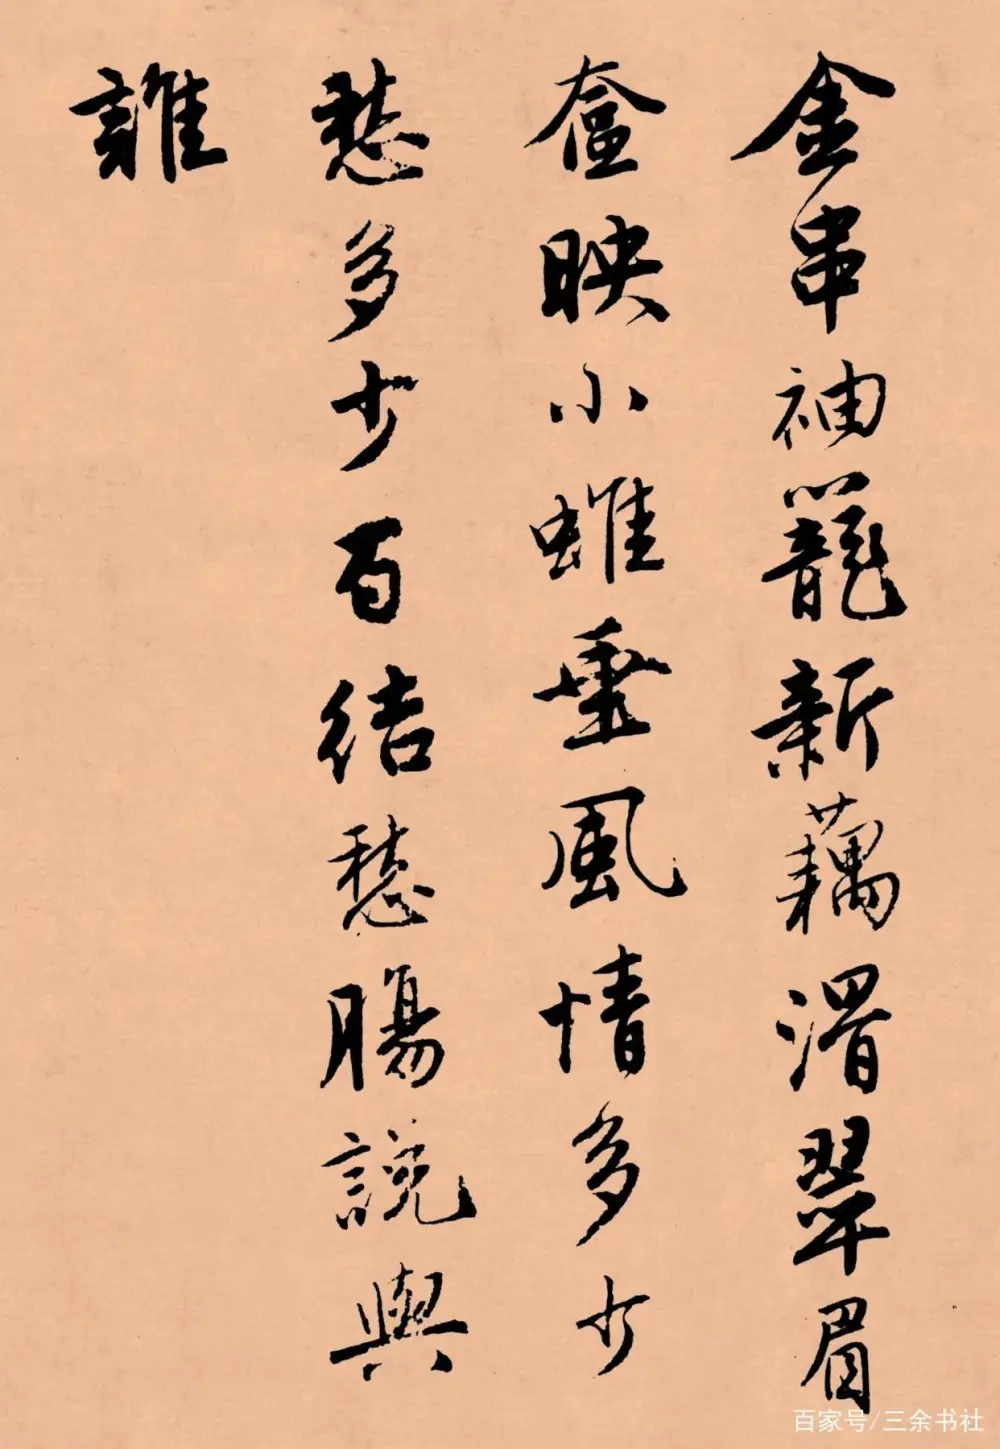 金串袖籠新藕滑翠眉
奩映小蛾垂風情多少
愁多少百結愁腸說與
誰
百家号/三余书社